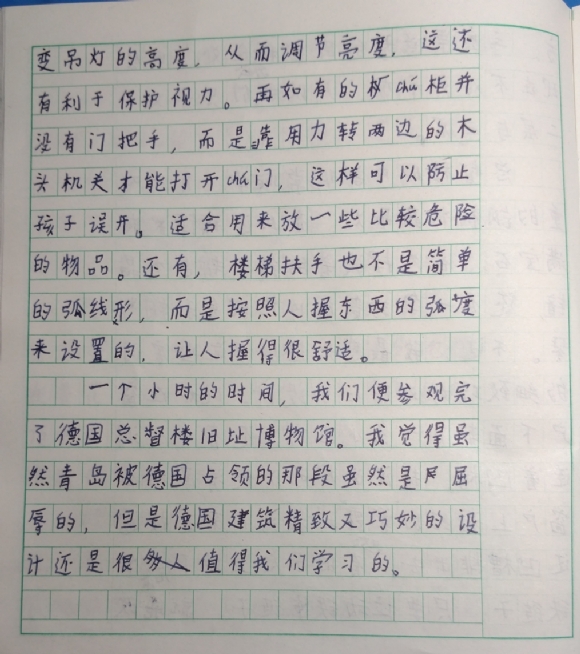 变吊灯的高度，从而调节亮度，这还
有利于保护视力。再如有的橱chú柜并
没有门把手，而是靠用力转两边的木
头机关才能打开chú门，这样可以防止
孩子误开。适合用来放一些比较危险
的物品。还有，楼梯扶手也不是简单
的弧线形，而是按照人握东西的弧度
来设置的，让人握得很舒适。
一个小时的时间，我们便参观完
了德国总督楼旧址博物馆。我觉得虽
然青岛被德国占领的那段虽然是屈
辱的，但是德国建筑精致又巧妙的设
计还是很值得我们学习的。